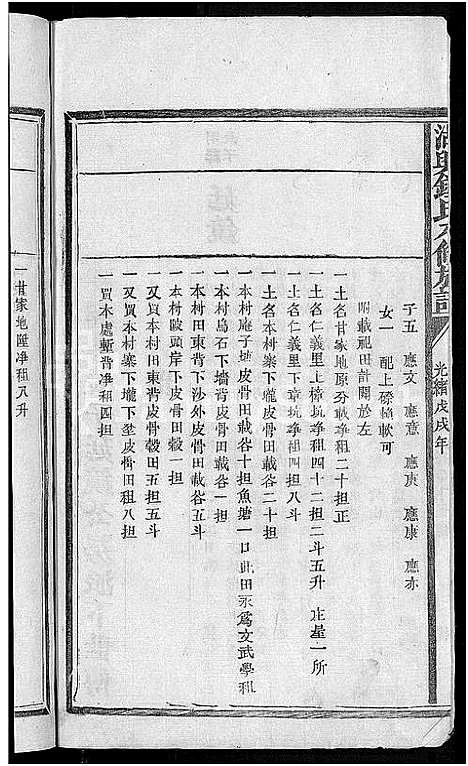 鍾氏六修族譜
光緒戊戌年
子五 應文 應意 應庚 應康 應亦
女一 配上磜 軟可
附載祀田計開於左
一土名甘家地原分載凈租二十担正
一土名仁義里上樟坑凈租四十二担二斗五升 庄屋一所
一土名仁義里下章坑凈租四担八斗
一土名本村寨下壠皮骨田載谷二十担
一本村庵子地皮骨田載谷十担魚塘一口此田永為文武學租
一本村烏石下墻背皮骨田載谷一担
一本村田東背下沙外皮骨田載谷五斗
一本村陂頭岸下皮骨田穀一担
一又買本村田東背皮骨穀田五担五斗
一又買本村寨下壠下坌皮骨田租八担
一買木處壢背凈租四担
一甘家地匯凈租八升